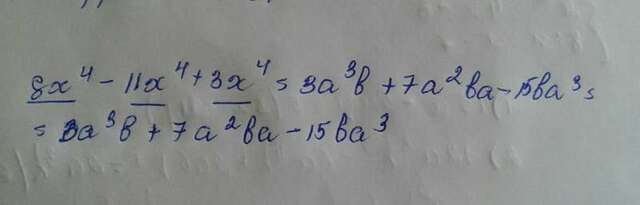 8x⁴ - 11x⁴ + 3x⁴ = 3a³b + 7a²ba - 15ba³ =
= 3a³b + 7a²ba - 15ba³